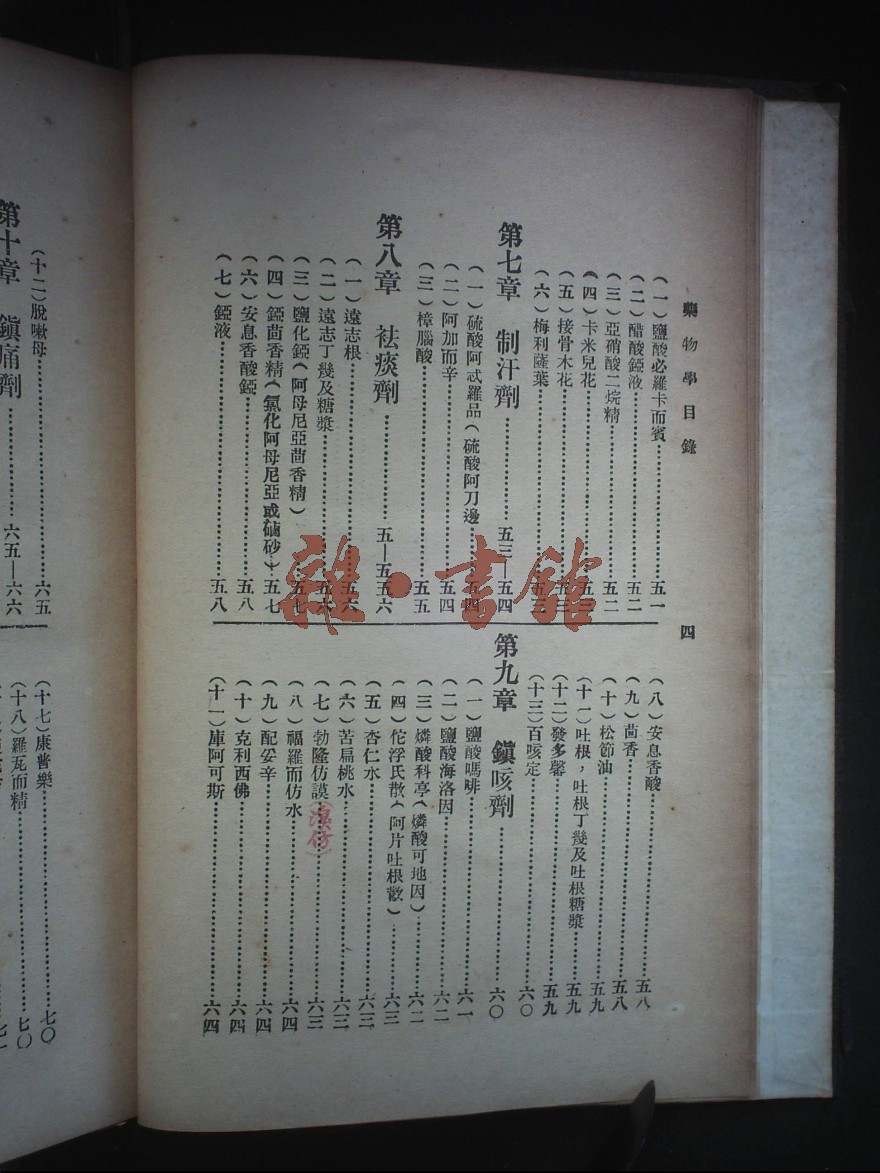 藥物學目錄
四
(一)鹽酸必羅卡而賓……五一
(二)醋酸錏液……五二
(三)亞硝酸二烷精……五二
(四)卡米兒花……五三
(五)接骨木花……五三
(六)梅利薩葉……五三
第七章 制汗劑……五三—五四
(一)硫酸阿忒羅品(硫酸阿刀邊……五四
(二)阿加而辛……五四
(三)樟腦酸……五五
第八章 祛痰劑……五五—五六
(一)遠志根……五六
(二)遠志丁幾及糖漿……五六
(三)鹽化錏(阿母尼亞茴香精)……五七
(四)錏茴香精(氯化阿母尼亞或磠砂)……五七
(六)安息香酸錏……五八
(七)錏液……五八
(八)安息香酸……五八
(九)茴香……五八
(十)松節油……五九
(十一)吐根,吐根丁幾及吐根糖漿……五九
(十二)發多馨……五九
(十三)百咳定……六〇
第九章 鎮咳劑……六〇
(一)鹽酸嗎啡……六一
(二)鹽酸海洛因……六二
(三)燐酸科亭(燐酸可地因)……六二
(四)佗浮氏散(阿片吐根散)……六三
(五)杏仁水……六三
(六)苦扁桃水……六三
(七)勃隆仿謨(溴仿)……六三
(八)福羅而仿水……六四
(九)配妥辛……六四
(十)克利西佛……六四
(十一)庫阿可斯……六四
(十二)脫嗽母……六五
第十章 鎮痛劑……六五—六六
(十七)康普樂……七〇
(十八)羅瓦而精……七〇
雜·書館